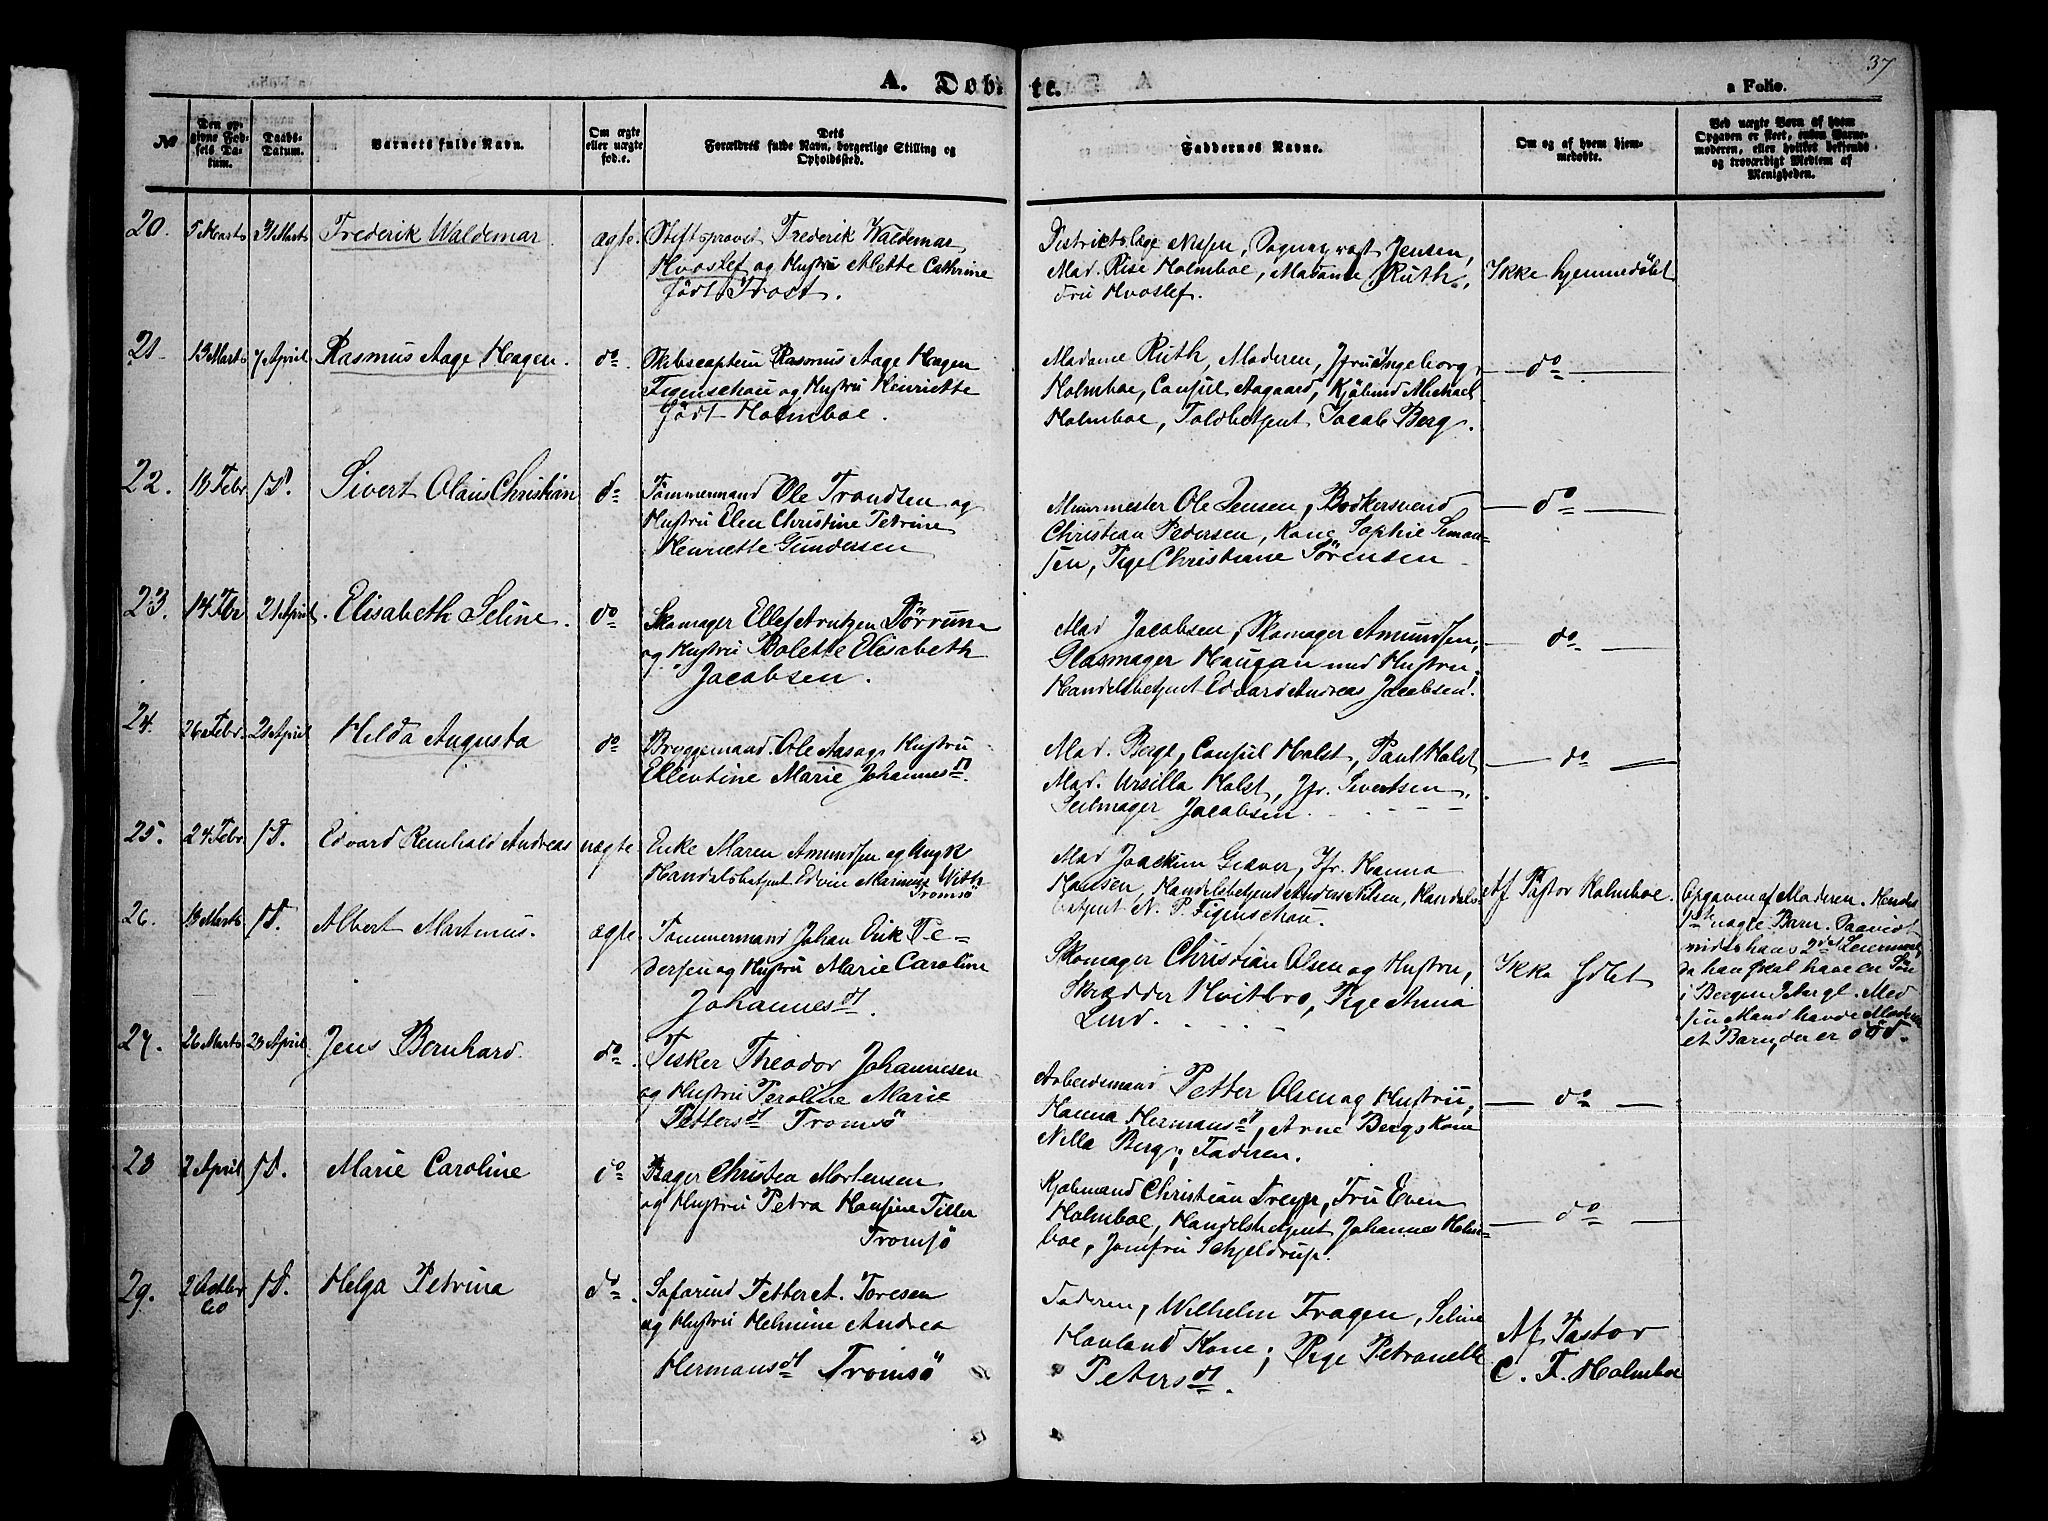 37
A. Døbte.
a Folio.
№
Den opgivne Fødsels Datum.
Daabs-Datum.
Barnets fulde Navn.
Om ægte eller uægte fød.e.
Dets
Forældres fulde Navn, borgerlige Stilling og
Opholdssted.
Faddernes Navne.
Om og af hvem hjemmedøbte.
Ved uægte Børn af hvem
Opgaven er skeet, enten Barne-
moderen, eller hvilket bekjendt
og troværdigt Medlem af
Menigheden.
20. 5 Marts 31 Marts Frederik Waldemar ægte Stiftsprovst Frederik Waldemar
Hvoslef og Hustru Mette Cathrine
født Trost.
Districtslæge Nissen, Sogneprest Jensen,
Mad. Rise Holmboe, Madame Ruth,
Fru Hvoslef.
Ikke hjemmedøbt
21. 13 Marts 7 April Rasmus Aage Hagen. do. Skibscaptein Rasmus Aage Hagen
Figenschou og Hustru Henriette
født Holmboe.
Madame Ruth, Moderen, Jfru Ingeborg
Holmboe, Consul Aagaard, Kjøbmd Michael
Holmboe, Toldbetjent Jacob Berg.
do
22. 18 Febr. s.D. Sivert Olaus Christian do Tømmermand Ole Trondsen og
Hustru Elen Christine Petrine
Henriette Gundersen
Muurmester Ole Jensen, Bødkersvend
Christian Pedersen, Kone Sophie Simon-
sen, Pige Christiane Sørensen
do
23. 14 Febr 21 April. Elisabeth Seline. do Skomager Ellef Arntzen
og Hustru Bolette Elisabeth
Jacobsen.
Mad Jacobsen, Skomager Amundsen,
Glasmager Haugan med Hustru,
Handelsbetjent Edvard Andreas Jacobsen.
do
24. 26 Febr. 21 April Hilda Augusta do Bryggemand Ole Aas og Hustru
Ellentine Marie Johannesdt
Mad. Berge, Consul Holst, Paul Holst
Mad. Ursilla Holst, Jfr. Sivertsen,
Seilmager Jacobsen.
do
25. 24 Febr s.D. Edvard Reinhold Andreas uægte Enke Maren Amundsen og Ungk
Handelsbetjent Edvin Marinus With
Tromsø
Mad Joachim Græver, Jfr. Hanna
Hansen, Handelsbetjent Anders Nilsen, Handels-
betjent N. P. Figenschou.
Af Pastor Holmboe.
Opgaven af Moderen. Hendes
1ste uægte Barn. Paavidst
vides hans 2det Leiermaal,
da han skal have en Søn
i Bergen. Med
sin Mand havde Moderen
et Barn, der er død.
26. 13 Marts s.D. Albert Martinus. ægte Tømmermand Johan Erik Pe-
dersen og Hustru Marie Caroline
Johannesdt.
Skomager Christian Olsen og Hustru,
Skrædder Hvitbro, Pige Anna
Lind.
Ikke hdbt
27. 26 Marts 23 April Jens Bernhard. do Fisker Theodor Johannesen
og Hustru Peroline Marie
Pettersdt Tromsø
Arbeidsmand Petter Olsen og Hustru,
Hanna Hermansdt, Arne Bergs Kone
Nella Berg; Faderen.
do
28 2 April s.D. Marie Caroline do Bager Christen Mortensen
og Hustru Petra Hansine Tiller
Tromsø
Kjøbmand Christian Dreyer, Fru Even
Holmboe, Handelsbetjent Johannes Holm-
boe, Jomfru Schjeldrup.
do
29. 2 Octbr 60 s.D. Helga Petrina do. Søfarend Petter A. Toresen
og Hustru Helmine Andrea
Hermansdt Tromsø
Faderen, Wilhelm Fragen, Seline
Havland Kone; Pige Petronelle
Petersdt.
Af Pastor
C. F. Holmboe